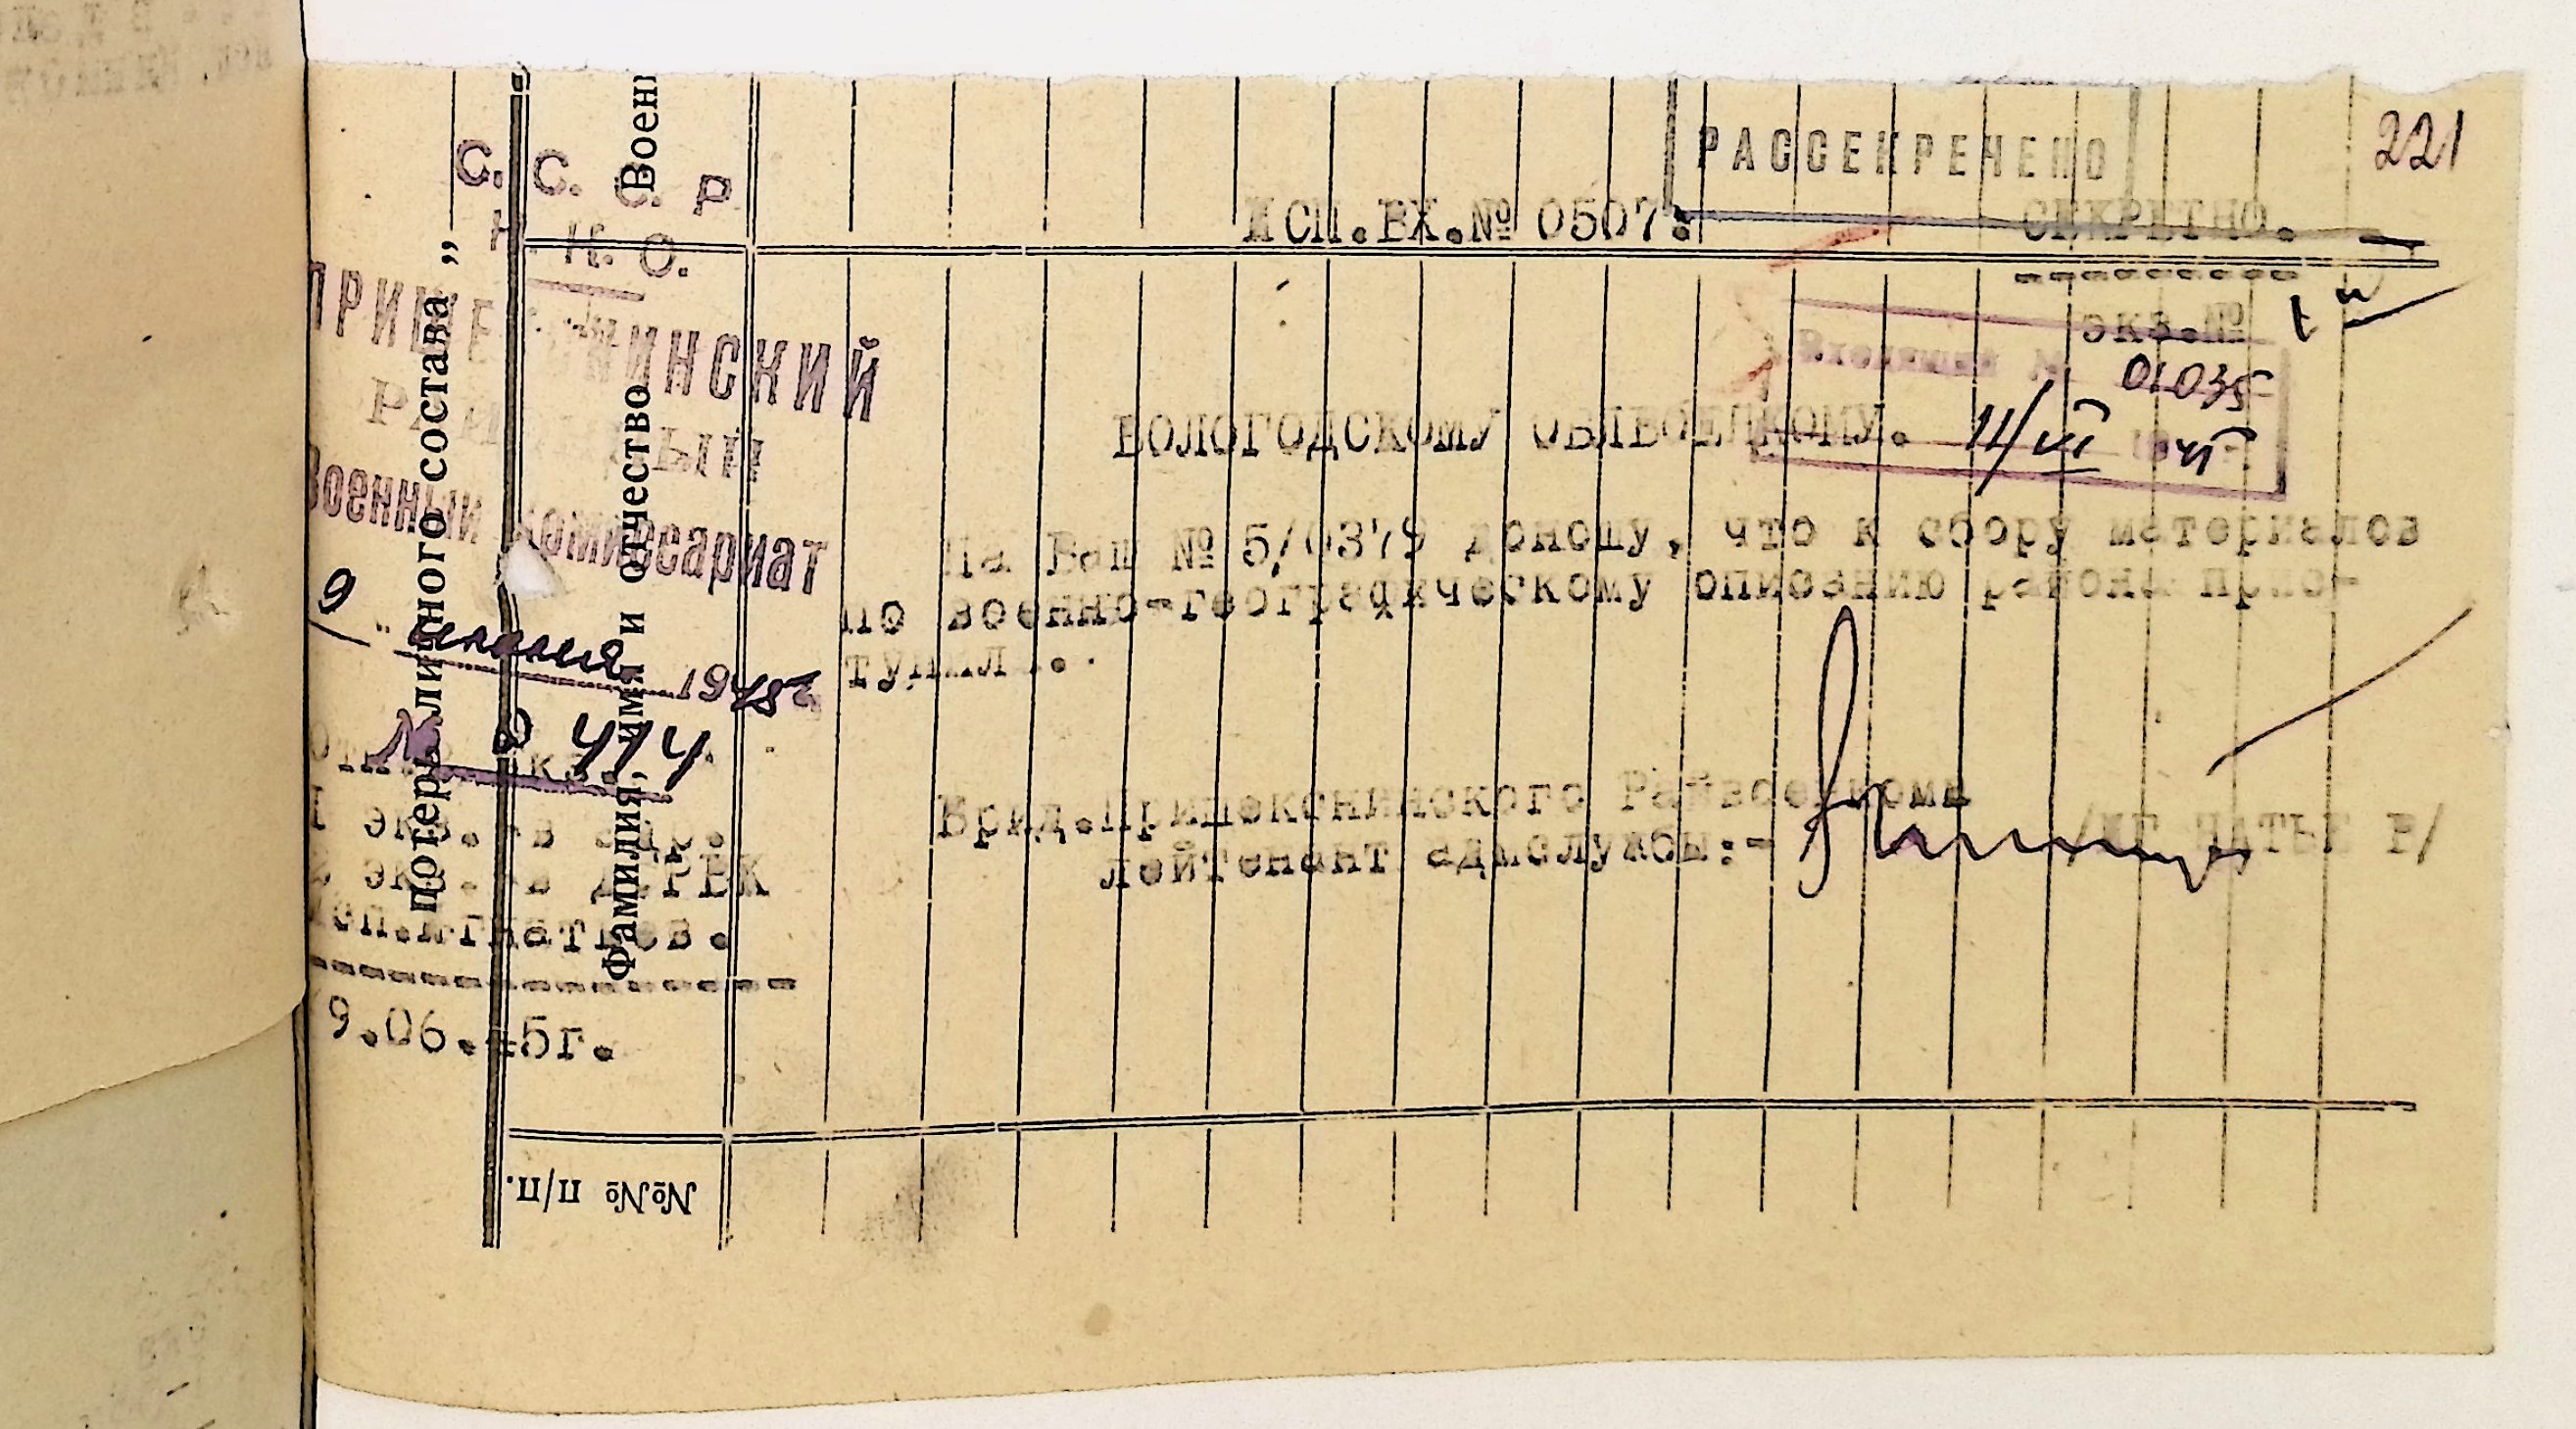 221
РАССЕКРЕЧЕНО
С. С. С. Р.
Н. К. О.
ПРИШЕКСНИНСКИЙ
РАЙОННЫЙ
Военный Комиссариат
9 " июня 1945 г.
№ 0474
ИСП.ВХ.№ 0507.
СЕКРЕТНО.
ЭКЗ.№ 1
Входящий № 01035
11/VI 1945
ВОЛОГОДСКОМУ ОБЛВОЕНКОМУ.
На Ваш № 5/0379 доношу, что к сбору материалов
по военно-географическому описанию района присту-
тупил..
Врид.Пришекснинского Райвоенкома
лейтенант адмслужбы:- /ИГНАТЬЕВ/
Отп. экз.
1 экз.-в адр.
2 экз.-в ДЕРВК
исп.Игнатьев.
9.06.45г.
потерь личного состава „
Фамилия, имя и отчество
Воен
№№ п/п.